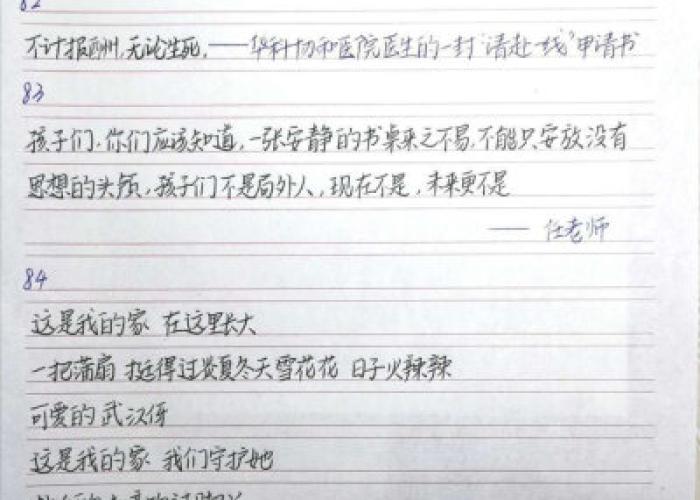 82
不计报酬,无论生死。——华科协和医院医生的一封“请赴一线”申请书
83
孩子们,你们应该知道,一张安静的书桌来之不易,不能只安放没有
思想的头颅,孩子们不是局外人,现在不是,未来更不是
—— 任老师
84
这是我的家 在这里长大
一把蒲扇 挺得过炎夏冬天雪花花 日子火辣辣
可爱的武汉伢
这是我的家 我们守护她